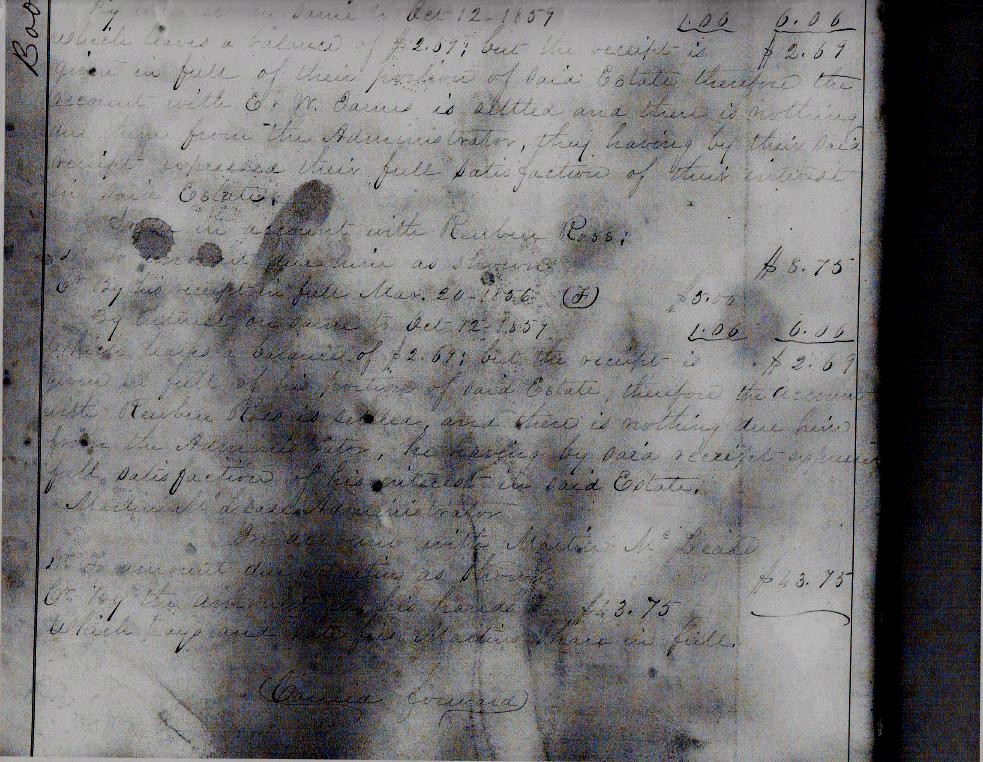 Boo
By interest on same to Oct 12-1859 1.06 6.06
which leaves a balance of $2.69; but the receipt is $2.69
given in full of their portion of said Estate therefore the
account with E. W. Eames is settled and there is nothing
due them from the Administrator, they having by their said
receipt expressed their full satisfaction of their interest
in said Estate.
Same in account with Reuben Ross:
Dr To amount due him as shown $8.75
Cr By his receipt in full Mar. 20-1856 (F) $5.00
By interest on same to Oct 12-1859 1.06 6.06
Which leaves a balance of $2.69; but the receipt is $2.69
given in full of his portion of said Estate, therefore the account
with Reuben Ross is settled, and there is nothing due him
from the Administrator, he having by said receipt expressed
full satisfaction of his interest in said Estate.
Martin Administrator
In account with Martin
Dr To amount due Martin as shown $43.75
Cr By the amount in his hands $43.75
Which pays Martin share in full.
(Carried forward)